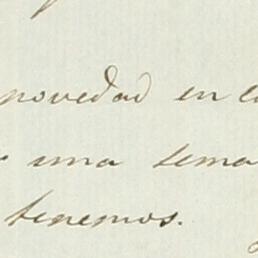 novedad en la
una tema
tenemos.